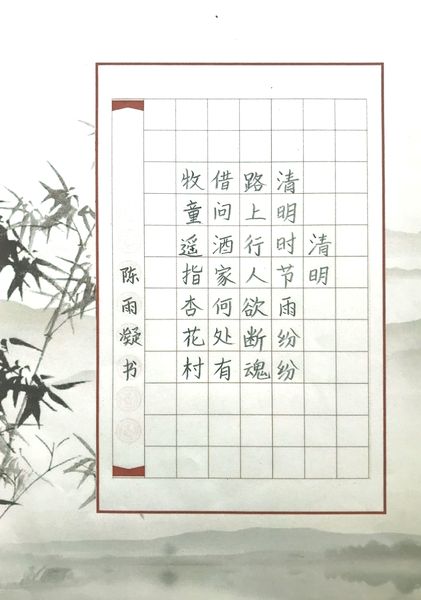 清明
清明时节雨纷纷
路上行人欲断魂
借问酒家何处有
牧童遥指杏花村
陈雨凝书